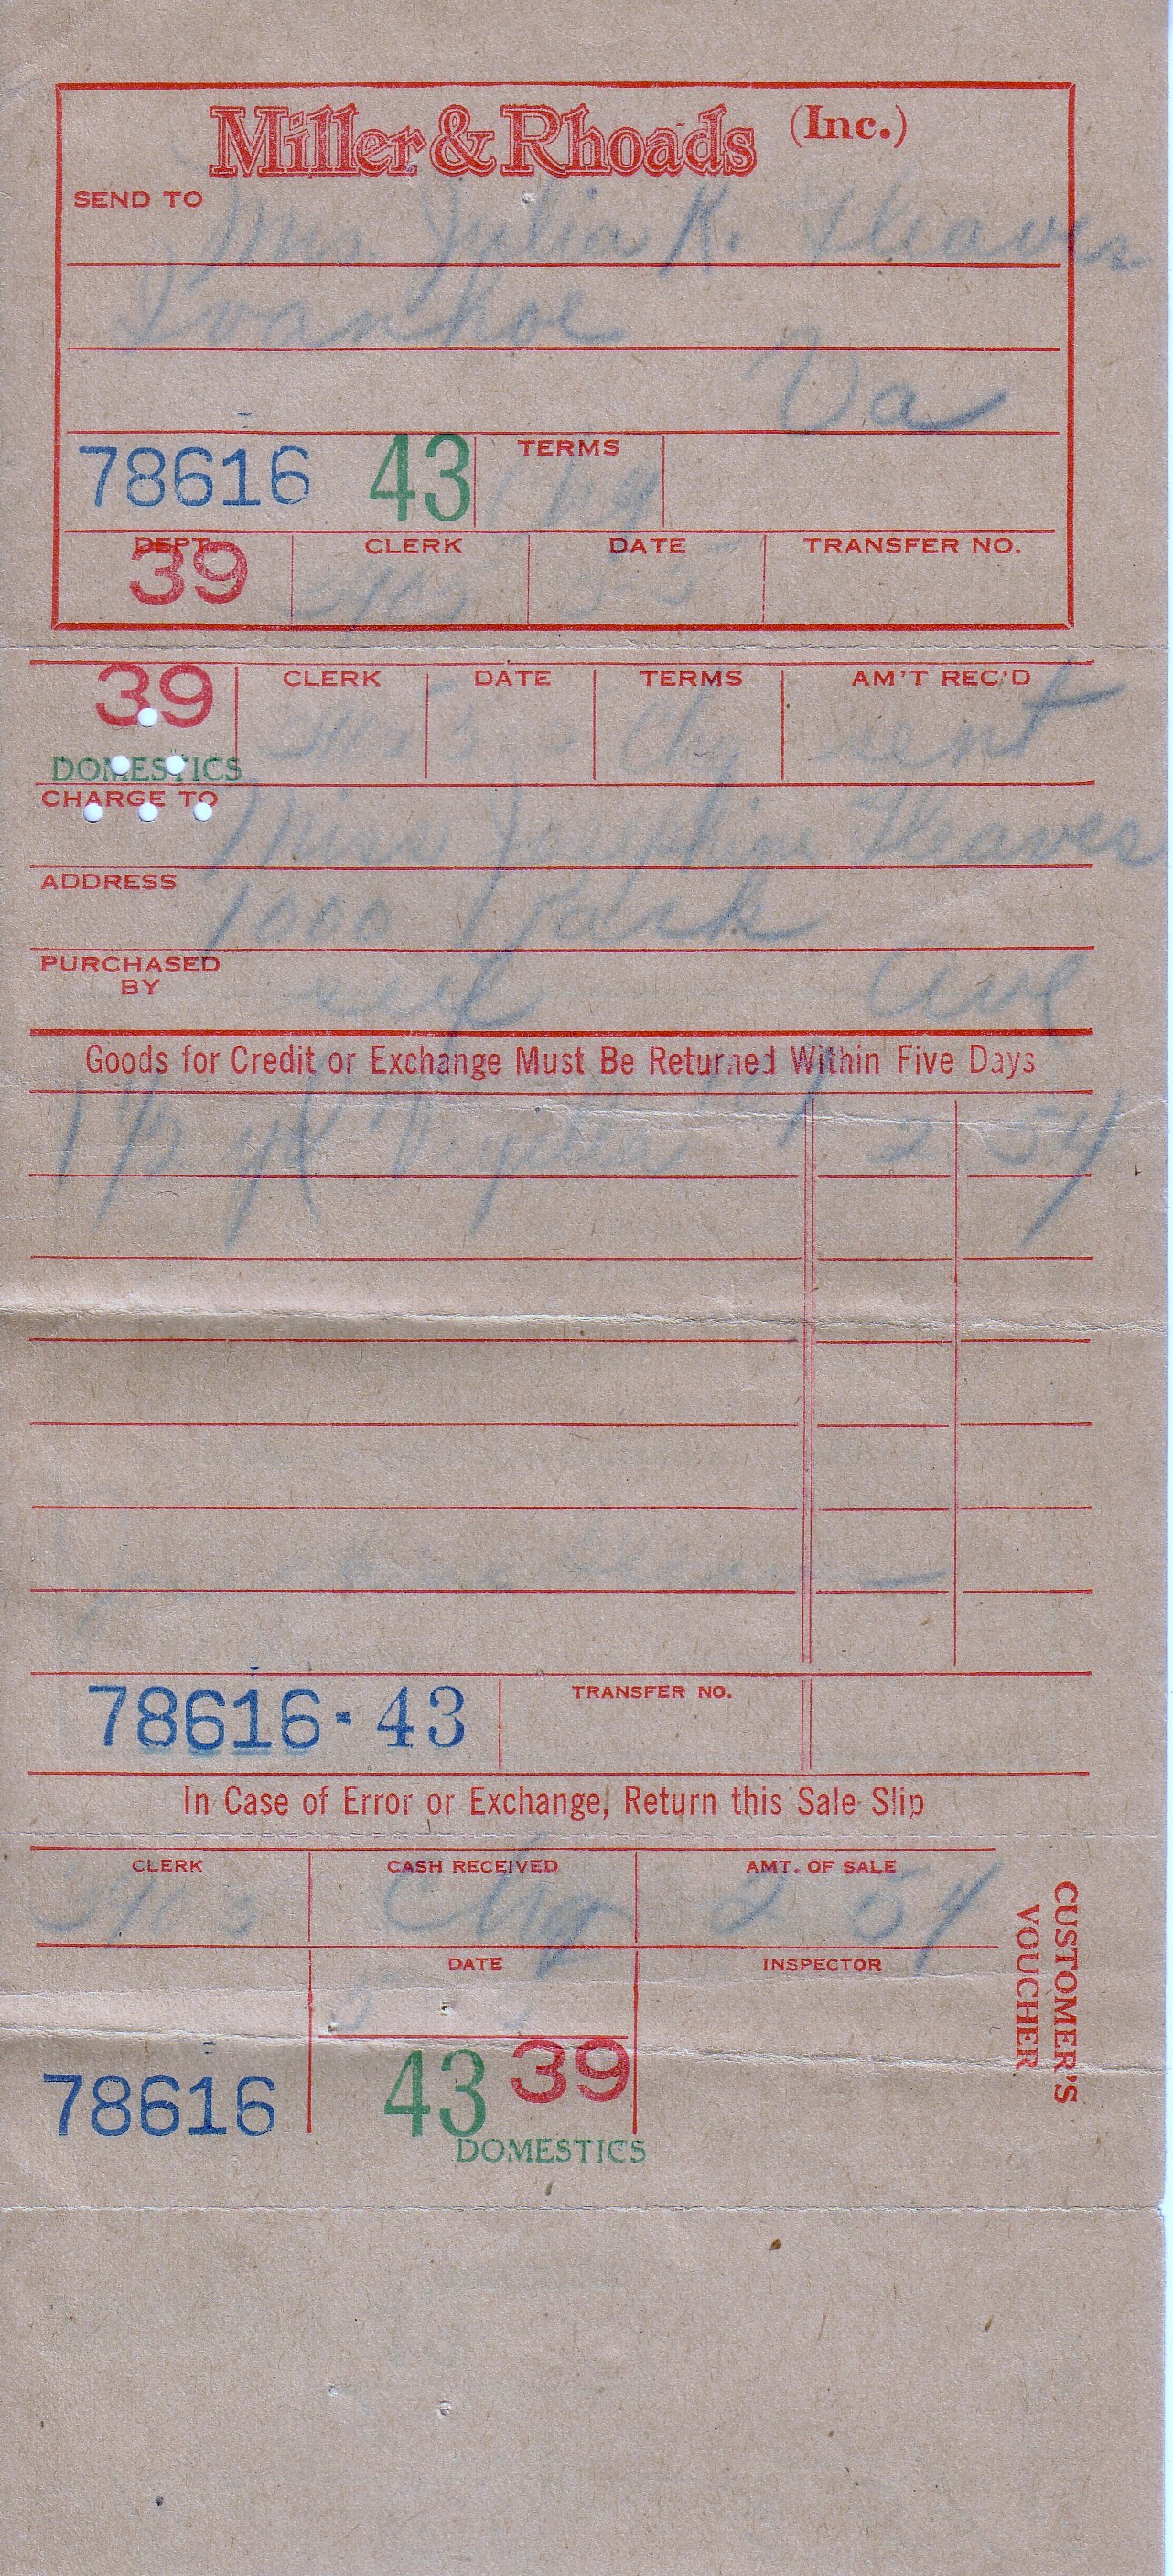 Miller & Rhoads (Inc.)
SEND TO Mrs Julia K. Cleaves
Ivanhoe
Va
78616 43 TERMS Chg
DEPT. 39 CLERK DATE TRANSFER NO.
39 CLERK DATE TERMS AM'T REC'D
Chg sent
DOMESTICS
CHARGE TO Miss Josephine Cleaves
ADDRESS 1000 Park
PURCHASED BY self Ave
Goods for Credit or Exchange Must Be Returned Within Five Days
1 1/2 yd 2 54
78616-43 TRANSFER NO.
In Case of Error or Exchange, Return this Sale Slip
CLERK CASH RECEIVED AMT. OF SALE
Chg 2 54
DATE INSPECTOR
CUSTOMER'S
VOUCHER
78616 43 39
DOMESTICS